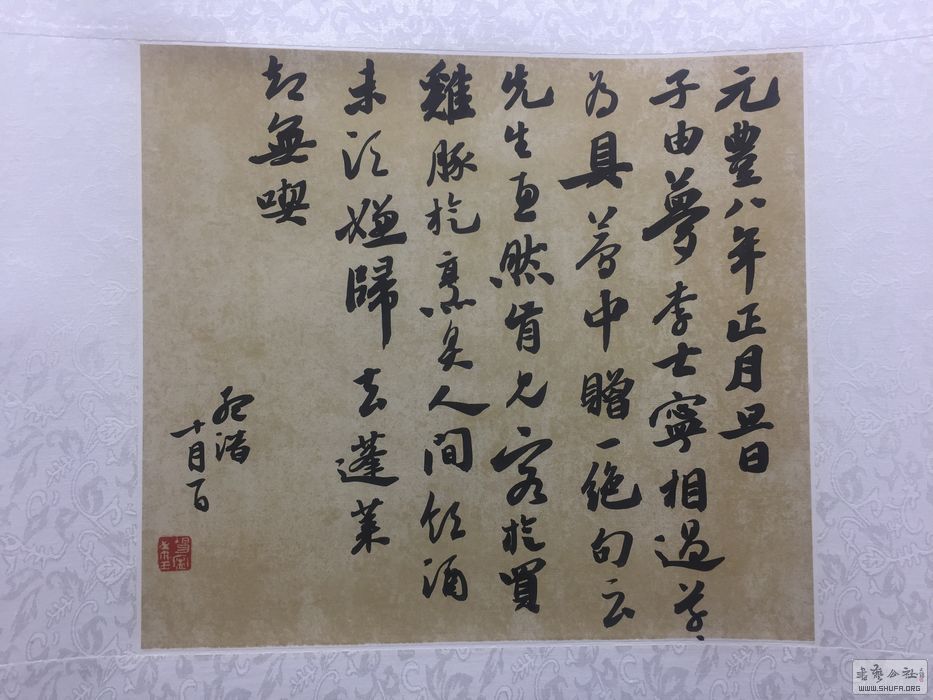 元豐八年正月旦日
子由夢李士寧相過草〻
為具夢中贈一絕句云
先生惠然肯見客旋買
雞豚旋烹炙人間飲酒
未須嫌歸去蓬萊
却無喫
十月
書藝公社
WWW.SHUFA.ORG